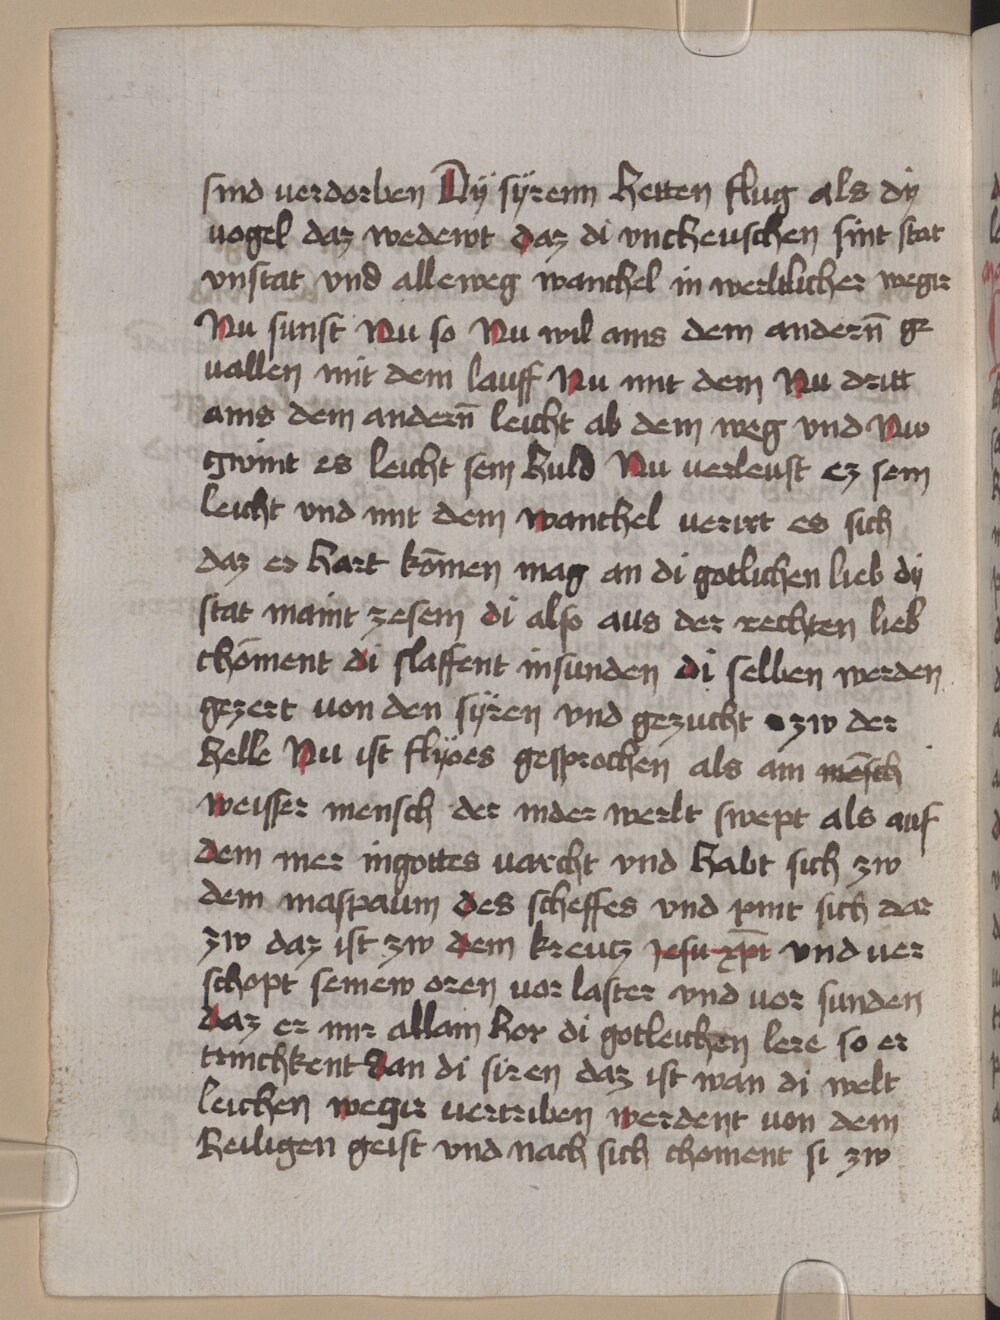 sind uerdorben Dÿ sÿrenn hetten flug als dÿ
uogel daz wedewt daz di vncheuschen sint stat
vnstat vnd alleweg wanckel in werltlicher wegir
Nu sunst Nu so Nu wil ains dem andern̄ ge
uallen mit dem lauff Nu mit dem Nu dritt
ains dem andern̄ leicht ab dem weg vnd Nw
gwint es leicht sein huld Nu uerleust ez sein
leicht vnd mit dem wanchel uerirt es sich
daz es hart kōmen mag an di gotlichen lieb dÿ
stat maint zesein di also aus der rechten lieb
chōment di slaffent insunden di selben werden
gezert uon den sÿren vnd gezucht zw der
helle Nu ist flÿoes gesprochen als ain mēsch
weisser mensch der inder werlt swept als auf
dem mer ingottes uarcht vnd habt sich zw
dem maspaum des scheffes vnd pint sich dar
zw daz ist zw dem kreutz jesu xp̄i vnd uer
schopt seinew oren uor laster vnd uor sunden
daz er nur allain hor di gotleichen lere so er
trinchkent dan di siren daz ist wan di welt
leichen wegir uertriben werdent uon dem
heiligen geist vnd nach sich choment si zw